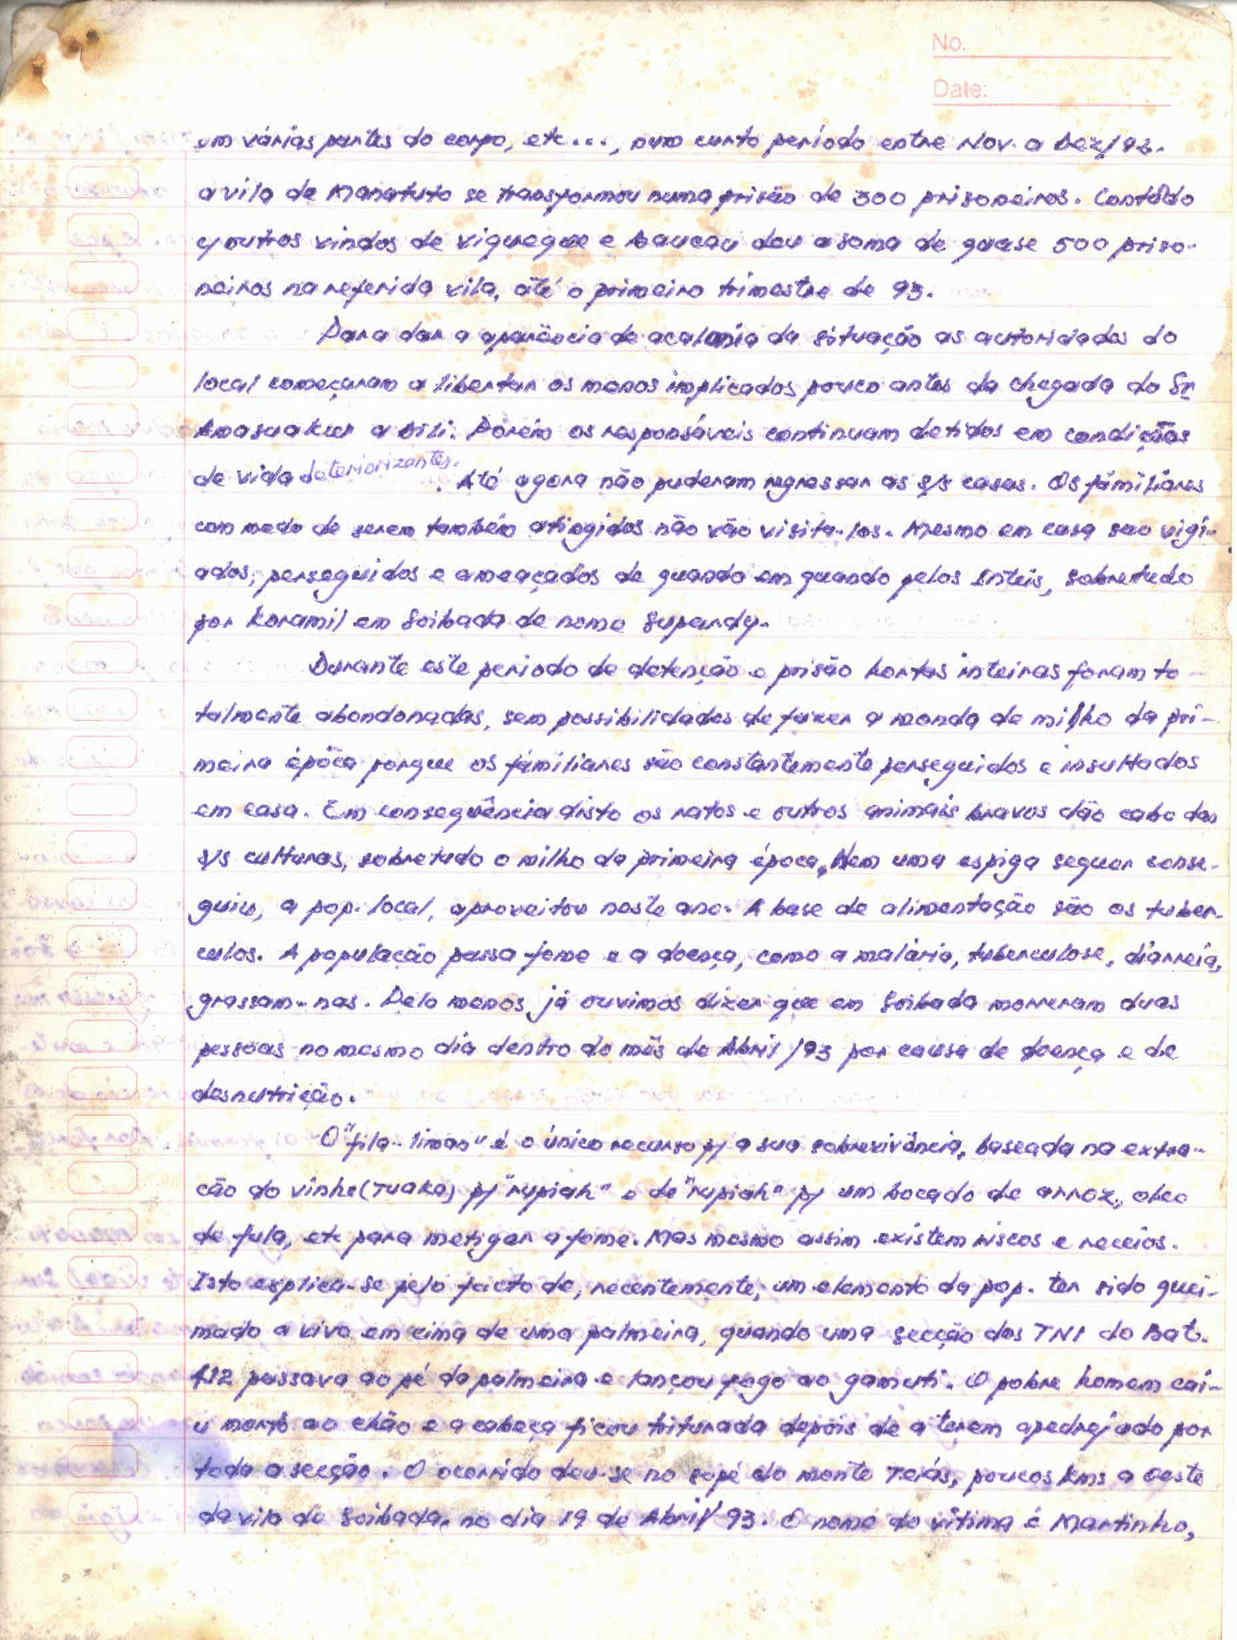 No.
Date:
em várias partes do corpo, etc..., num curto período entre Nov. a Dez/92.
a vila de Manatuto se transformou numa prisão de 300 prisoneiros. Contãdo
c/ outros vindos de viqueque e Baucau deu a soma de quase 500 priso-
neiros na referida vila, até o primeiro trimestre de 93.
Para dar a aparência de acalmia da situação as autoridades do
local começaram a libertar os menos implicados pouco antes da chegada do Sr
Amos a Dili. Porém os responsáveis continuam detidos em condições
de vida deteriorizantes. Até agora não puderam regressar as s/s casas. Os fámiliares
com medo de serem também atingidos não vão visita-los. Mesmo em casa sao vigi-
ados, perseguidos e ameaçados de quando em quando pelos Intéis, sobretudo
por koramil em Soibada de nome Supandy.
Durante este período de detenção e prisão hortas inteiras foram to-
talmente abondonadas, sem possibilidades de fazer a monda de milho da pri-
meira época porque os fámiliares são constantemente perseguidos e insultados
em casa. Em consequência disto os ratos e outros animais bravos dão cabo das
s/s culturas, sobretudo o milho da primeira época. Nem uma espiga sequer conse-
guiu, a pop. local, aproveitou neste ano. A base de alimentação são os tubér-
culos. A população passa fome e a doença, como a malária, tuberculose, diarreia,
grassam-nas. Pelo menos já ouvimos dizer que em Soibada morreram duas
pessoas no mesmo dia dentro do mês de Abril/93 por causa de doença e de
desnutrição.
O "fila-liman" é o único recurso p/ a sua sobrevivência, baseada na extra-
ção do vinho (TUAKA) p/ "rupiah" e de "rupiah" p/ um bocado de arroz, oleo
de fula, etc para metigar a fome. Mas mesmo assim existem riscos e receios.
Isto explica-se pelo facto de, recentemente, um elemento da pop. ter sido quei-
mado a vivo em cima de uma palmeira, quando uma secção dos TNI do Bat.
412 passava ao pé da palmeira e lançou fogo ao gamuti. O pobre homem cai-
u morto ao chão e a cabeça ficou triturada depois de a terem apedrejado por
toda a secção. O ocorrido deu-se no sopé do monte Teiás, poucos kms a Oeste
da vila de Soibada, no dia 19 de Abril/93. O nome do vítima é Martinho,